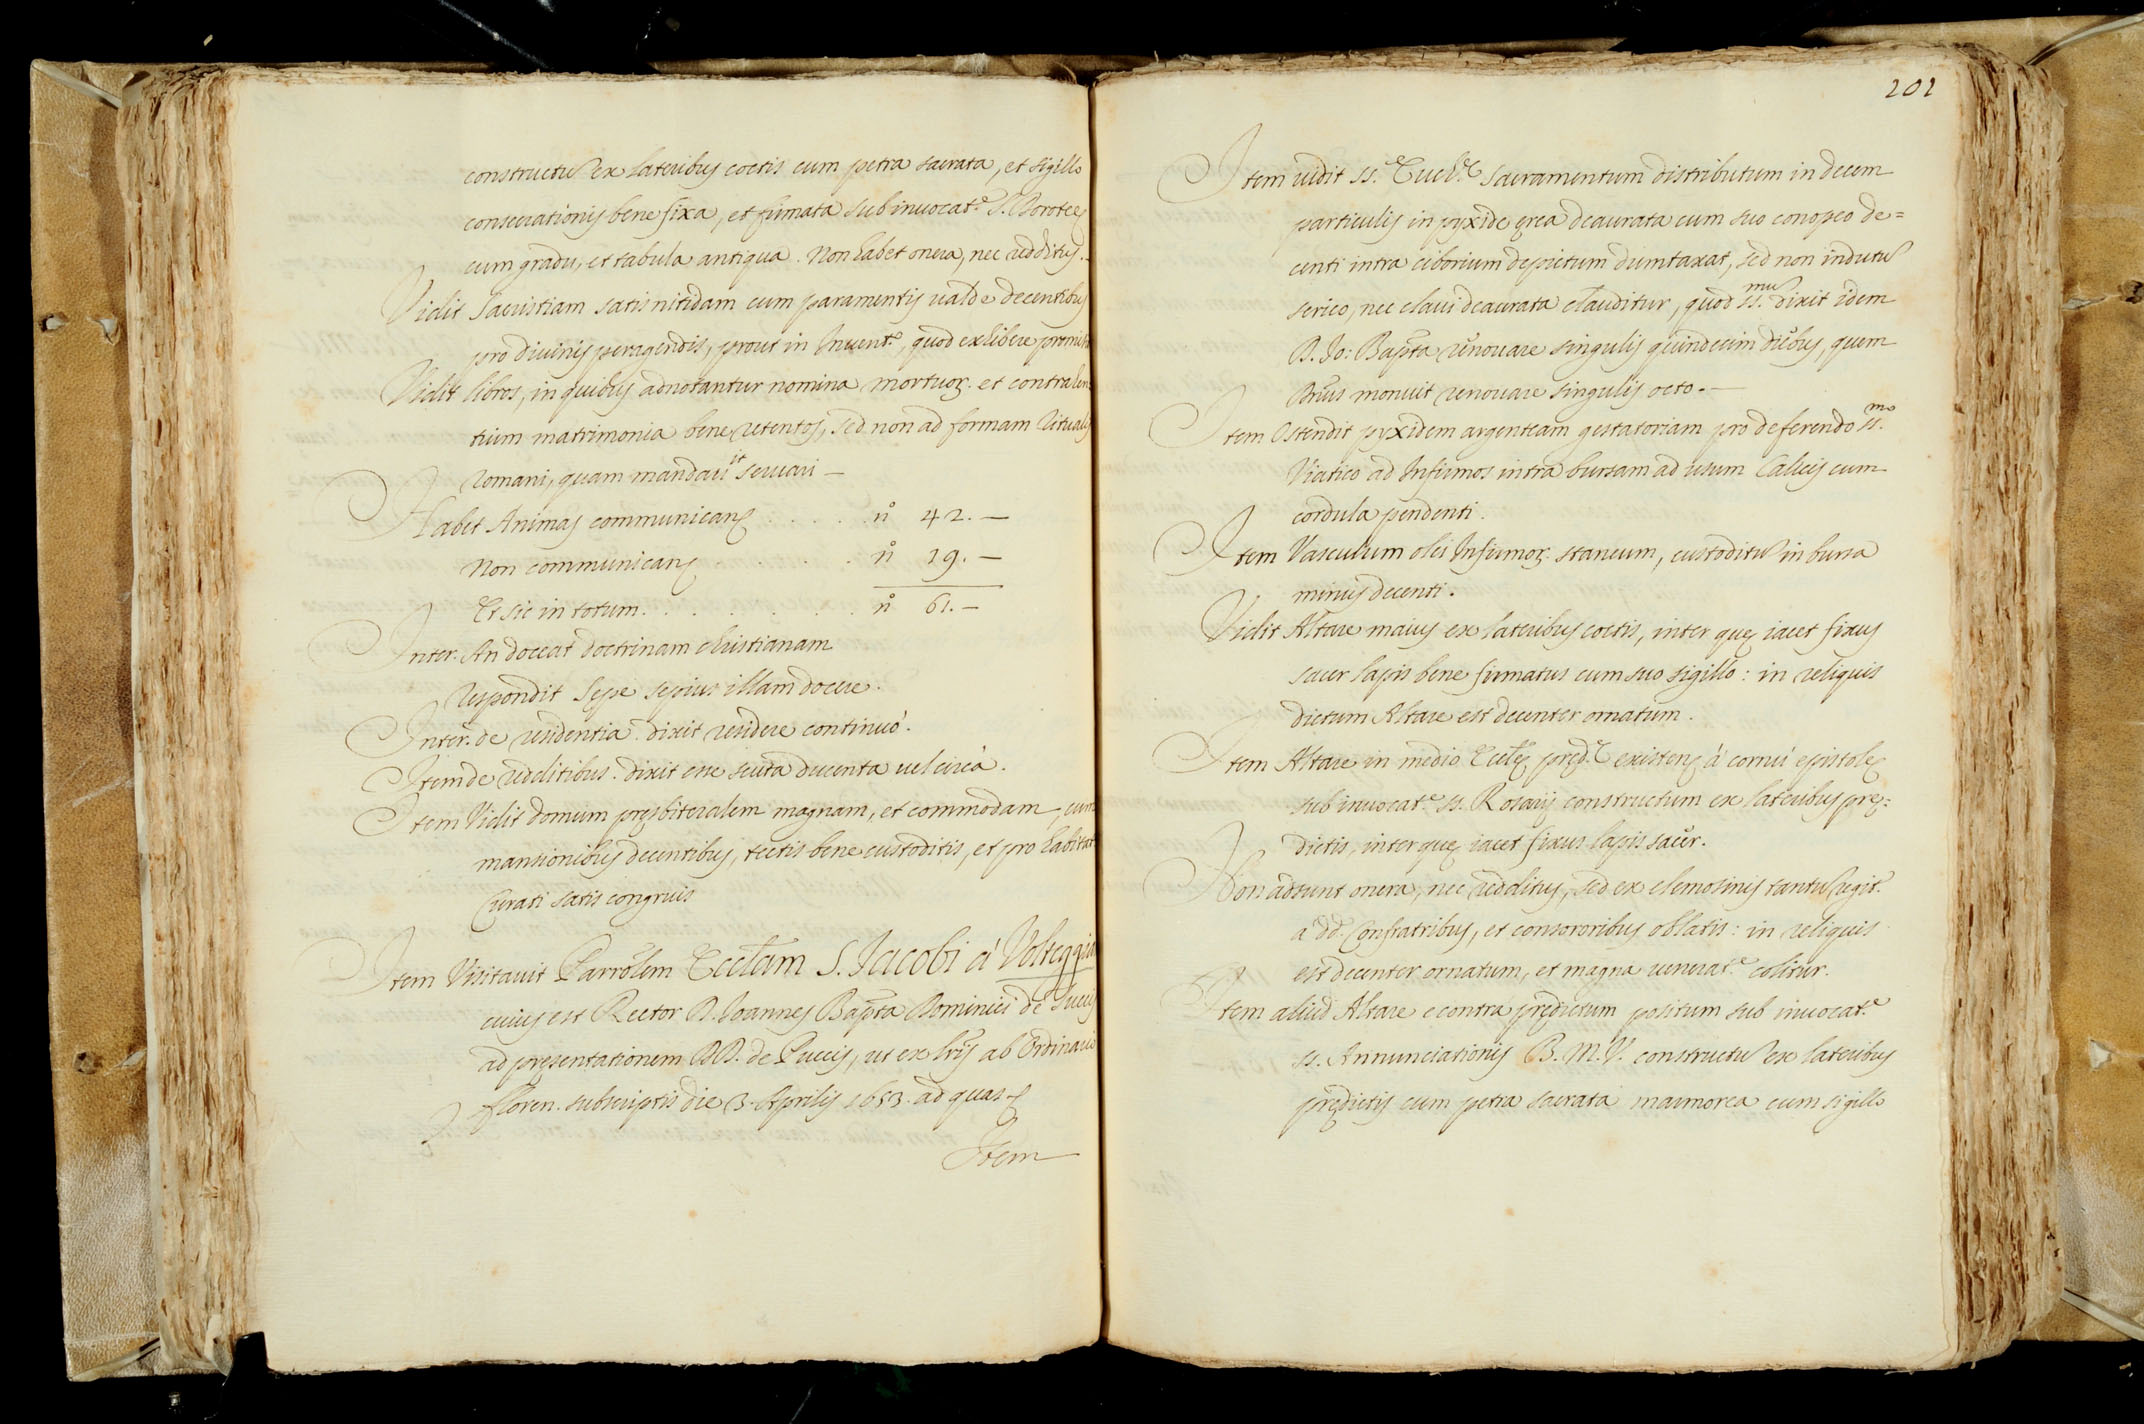 constructũ ex lateribus coctis cum petra sacrata, et sigillo
consecrationis bene fixa, et firmata sub invocat.e S. Doroteę
cum gradu, et tabula antiqua. Non habet onera, nec redditus.
Vidit Sacristiam satis nitidam cum paramentis valde decentibus
pro divinis peragendis, prout in Invent.o, quod exhibere
Vidit libros, in quibus adnotantur nomina mortuor. et contrahen:
tium matrimonia bene retentos, sed non ad formam Ritualis
Romani, quam mandavit servari —
Habet Animas communicant. . . . . . n.o 42. —
Non communicant. . . . . . n.o 19. —
Et sic in totum. . . . . . . . n.o 61. —
Inter. An doceat doctrinam christianam
respondit Sępe sępius illam docere.
Inter. de residentia. dixit residere continuò.
Item de redditibus. dixit esse scuta ducenta vel circà.
Item Vidit domum pręsbiteralem magnam, et commodam, cum
mansionibus decentibus, tectis bene custoditis, et pro habitat.e
Curati satis congruis
Item Visitavit Parrõlem Eccl̃am S. Jacobi à Volteggian
cuius est Rector D. Joannes Bap̃ta Dominici de
ad pręsentationem DD. de Puccis, ut ex lr̃is ab Ordinario
floren. subscriptis die 3. Aprilis 1653. ad quas
Item
202
Item vidit ss. Euch.e Sacramentum distributum in decem
particulis in pyxide ęrea deaurata cum suo conopeo de=
centi intra ciborium depictum dumtaxat, sed non indutũ
serico, nec clavi deaurata clauditur, quod ss.mũ dixit idem
D. Jo: Bap̃ta renovare singulis quindecim diebus, quem
Dñus monuit renovare singulis octo. —
Item Ostendit pyxidem argenteam gestatoriam pro deferendo ss.mo
Viatico ad Infirmos intra bursam ad usum Calicis cum
cordula pendenti.
Item Vasculum olei Infirmor. staneum, custoditũ in bursa
minus decenti.
Vidit Altare maius ex lateribus coctis, inter quę iacet fixus
sacer lapis bene firmatus cum suo sigillo: in reliquis
dictum Altare est decenter ornatum.
Item Altare in medio Eccl̃ę pręd.e existens à cornù epistolę
sub invocat.e ss. Rosarij constructum ex lateribus prę=
dictis, inter quę iacet fixus lapis sacer.
Non adsunt onera, nec redditus, sed ex elemosinis tantũ regit.
a dd. Confratribus, et consororibus oblatis: in reliquis
est decenter ornatum, et magna venerat.e colitur.
Item aliud Altare e contra pręductum positum sub invocat.e
ss. Annunciationis B. M. V. constructũ ex lateribus
prędictis cum petra sacrata marmorea cum sigillo